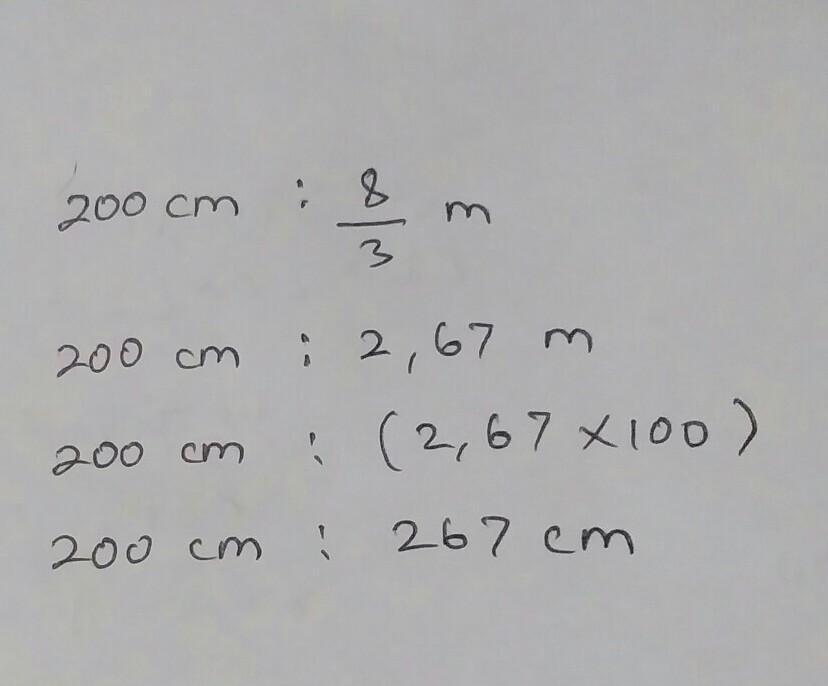 200 cm : 8/3 m
200 cm : 2,67 m
200 cm : (2,67 ×100)
200 cm : 267 cm